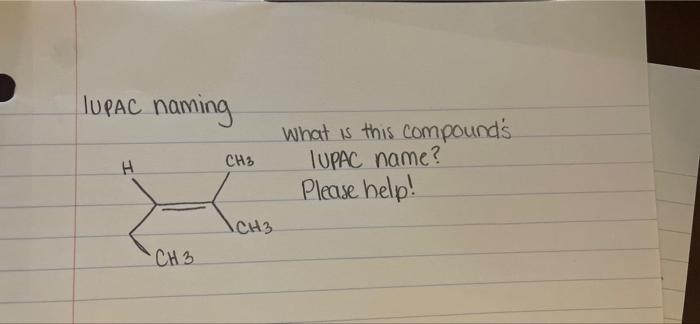 IUPAC naming
What is this compound's
IUPAC name?
Please help!
H
CH3
CH3
CH3